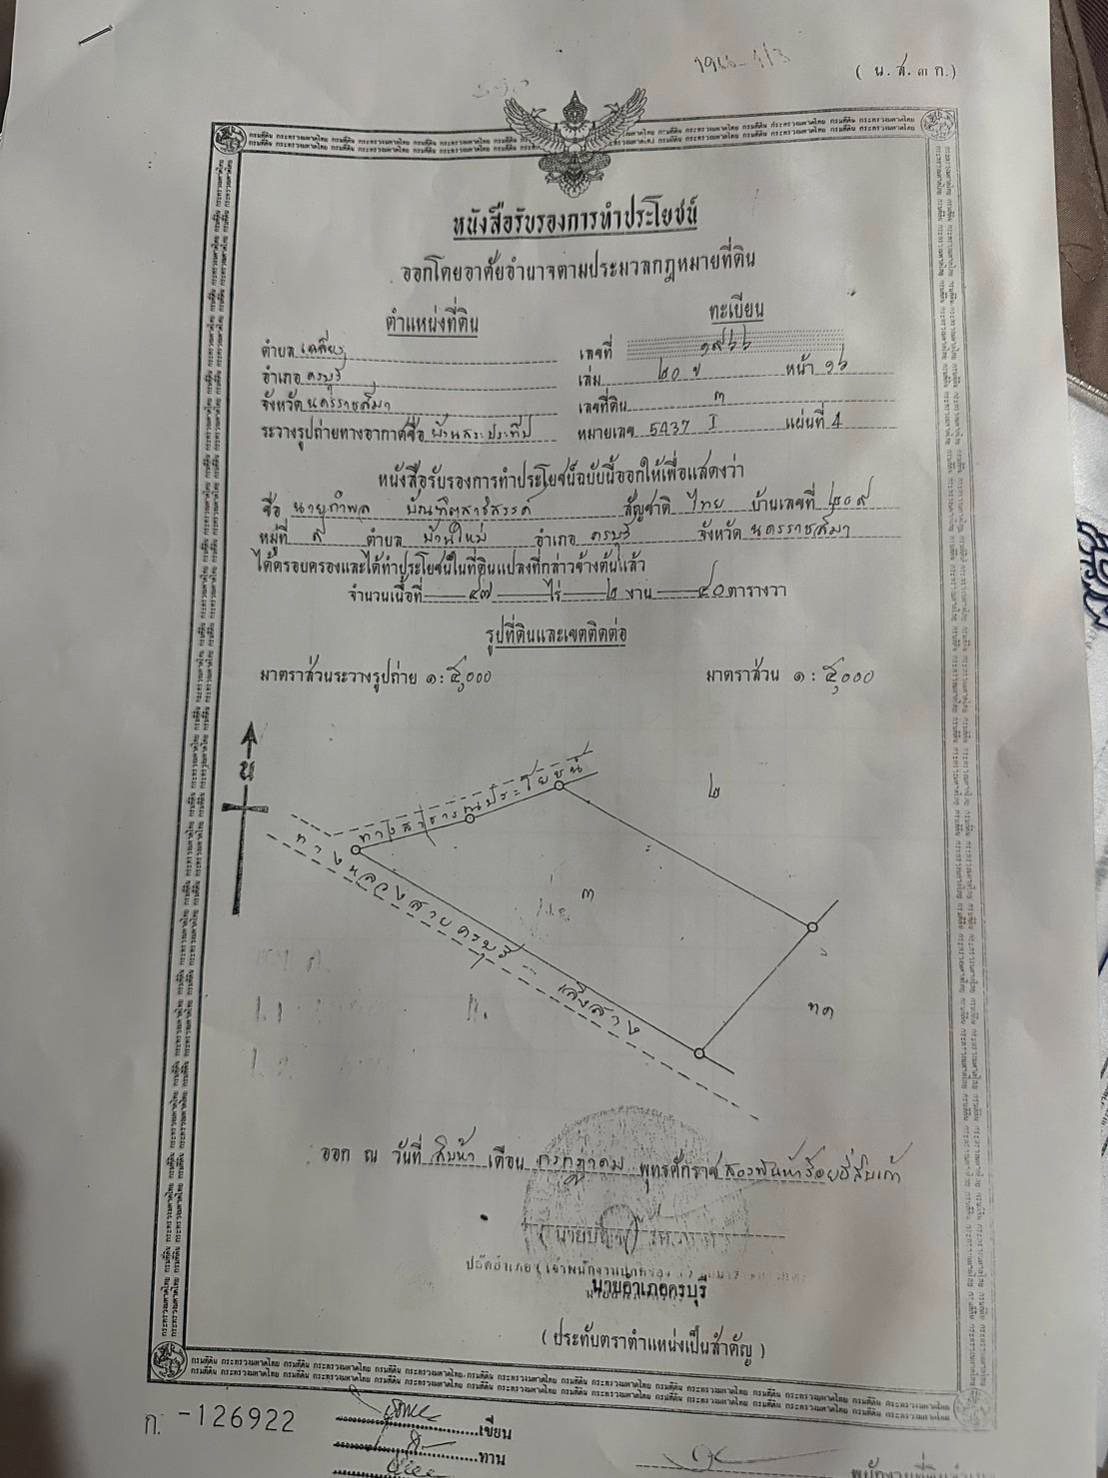 (น.ส. ๓ ก.)
หนังสือรับรองการทำประโยชน์
ออกโดยอาศัยอำนาจตามประมวลกฎหมายที่ดิน
ตำแหน่งที่ดิน
ทะเบียน
ตำบล เฉลียง
เลขที่ ๑๙๖๖
อำเภอ ครบุรี
เล่ม ๒๐ ข หน้า ๑๖
จังหวัด นครราชสีมา
เลขที่ดิน ๓
ระวางรูปถ่ายทางอากาศชื่อ บ้านสระประทีป
หมายเลข 5437 I แผ่นที่ 4
หนังสือรับรองการทำประโยชน์ฉบับนี้ออกให้เพื่อแสดงว่า
ชื่อ นายกำพล สัญชาติ ไทย บ้านเลขที่ ๒๐๙
หมู่ที่ ๙ ตำบล บ้านใหม่ อำเภอ ครบุรี จังหวัด นครราชสีมา
ได้ครอบครองและได้ทำประโยชน์ในที่ดินแปลงที่กล่าวข้างต้นแล้ว
จำนวนเนื้อที่ ๔๗ ไร่ ๒ งาน ๔๐ ตารางวา
รูปที่ดินและเขตติดต่อ
มาตราส่วนระวางรูปถ่าย ๑ : ๕,๐๐๐
มาตราส่วน ๑ : ๕,๐๐๐
น
ทางสาธารณประโยชน์
๒
ทางหลวงสายครบุรี - เสิงสาง
๓
ทค
ออก ณ วันที่ สิบห้า เดือน กรกฎาคม พุทธศักราช สองพันห้าร้อยยี่สิบเก้า
นายอำเภอครบุรี
(ประทับตราตำแหน่งเป็นสำคัญ)
ก. -126922
เขียน
ทาน